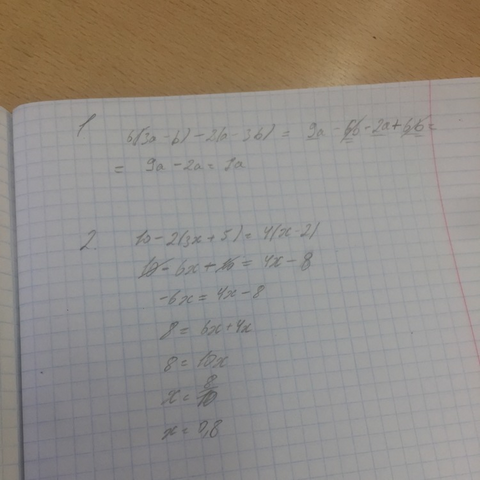 1
6(3a - b) - 2(a - 3b) = 9a - 6b - 2a + 6b =
= 9a - 2a = 7a
2.
10 - 2(3x + 5) = 4(x - 2)
10 - 6x + 10 = 4x - 8
-6x = 4x - 8
8 = 6x + 4x
8 = 10x
x = 8/10
x = 0,8